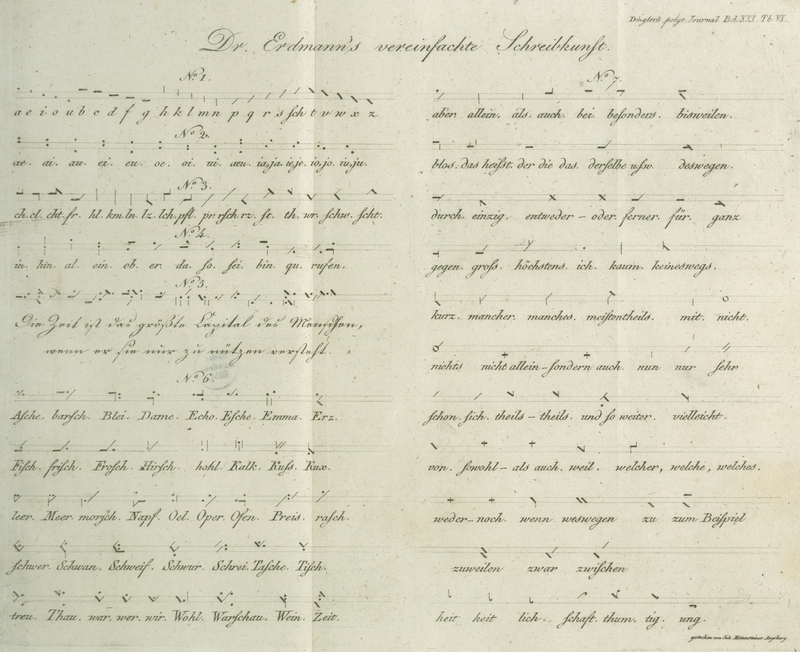 Dingler's polyt. Journal Bd. XXI. Tb. VI.
Dr. Erdmann's vereinfachte Schreibkunſt.
No. 1.
a e i o u b c d f g h k l m n p q r s ſch t v w x z
No. 2.
ae. ai. au. ei. eu. oe. oi. ui. äu. ia, ja. ie, je. io, jo. iu, ju.
No. 3.
ch. cl. cht. fr. hl. km. ln. lz. lch. pſl. pr. rſch. rz. ſt. th. wr. ſchw. ſcht.
No. 4.
in. hin. al. ein. ob. er. da. ſo. ſei. bin. qu. rufen.
No. 5.
Die Zeit iſt das größte Capital des Menſchen,
wenn er ſie nur zu nützen verſteht.
No. 6.
Aſche. barſch. Blei. Dame. Echo. Eſche. Emma. Erz.
Fiſch. friſch. Froſch. Hirſch. hohl. Kalk. Kuſs. Kux.
leer. Meer. morſch. Napf. Oel. Oper. Ofen. Preis. raſch.
ſchwer. Schwan. Schweif. Schwur. Schrei. Taſche. Tiſch.
treu. Thau. war. wer. wir. Wohl. Warſchau. Wein. Zeit.
No. 7.
aber. allein. als. auch. bei. beſonders. bisweilen.
blos. das heiſst. der die das. derſelbe uſw. deswegen.
durch. einzig. entweder – oder. ferner. für. ganz
gegen. groſs. höchstens. ich. kaum. keineswegs.
kurz. mancher. manches. meiſtentheils. mit. nicht.
nichts nicht allein – ſondern auch. nun nur ſehr
ſchon. ſich. theils – theils. und ſo weiter. vielleicht.
von. ſowohl – als auch. weil. welcher, welche, welches.
weder – noch. wenn weswegen zu zum Beiſpiel
zuweilen zwar zwiſchen
heit keit lich. ſchaft. thum. tig. ung.